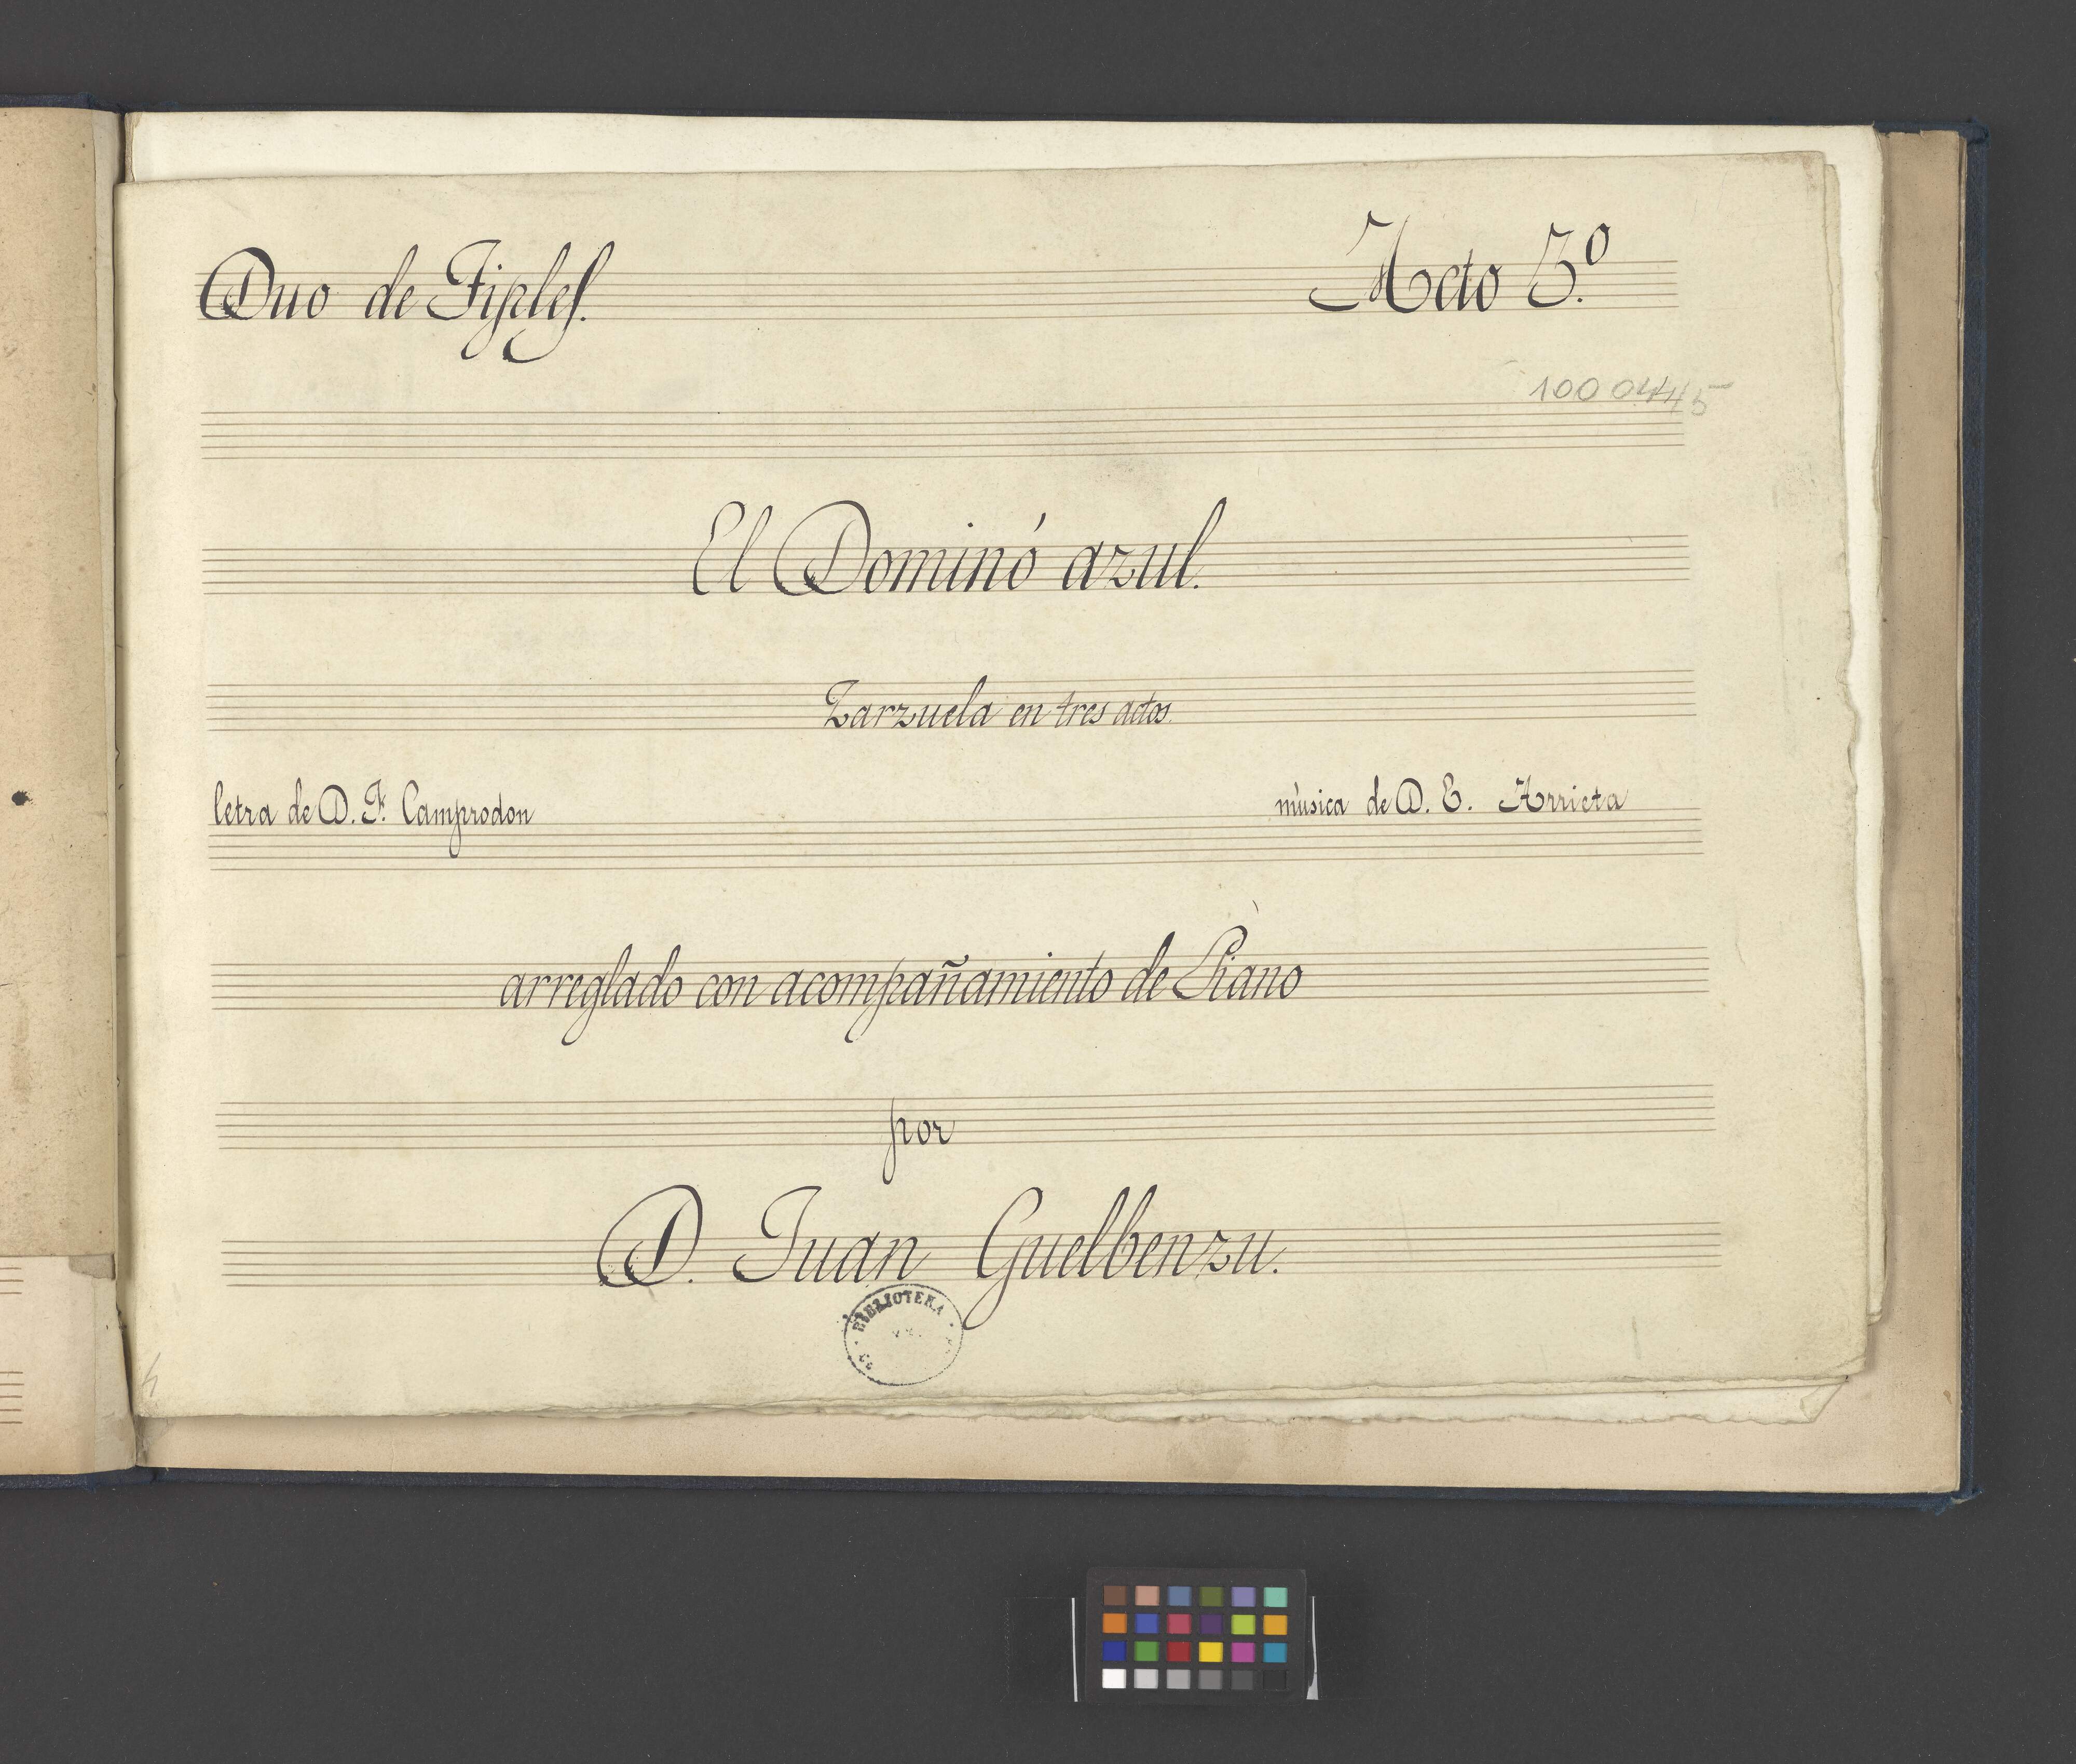 Duo de Tiples. Acto 3.º
1000445
El Dominó azul.
Zarzuela en tres actos.
letra de D. F. Camprodon música de D. E. Arrieta
arreglado con acompañamiento de Piano
por
D. Juan Guelbenzu.
BIBLIOTEKA